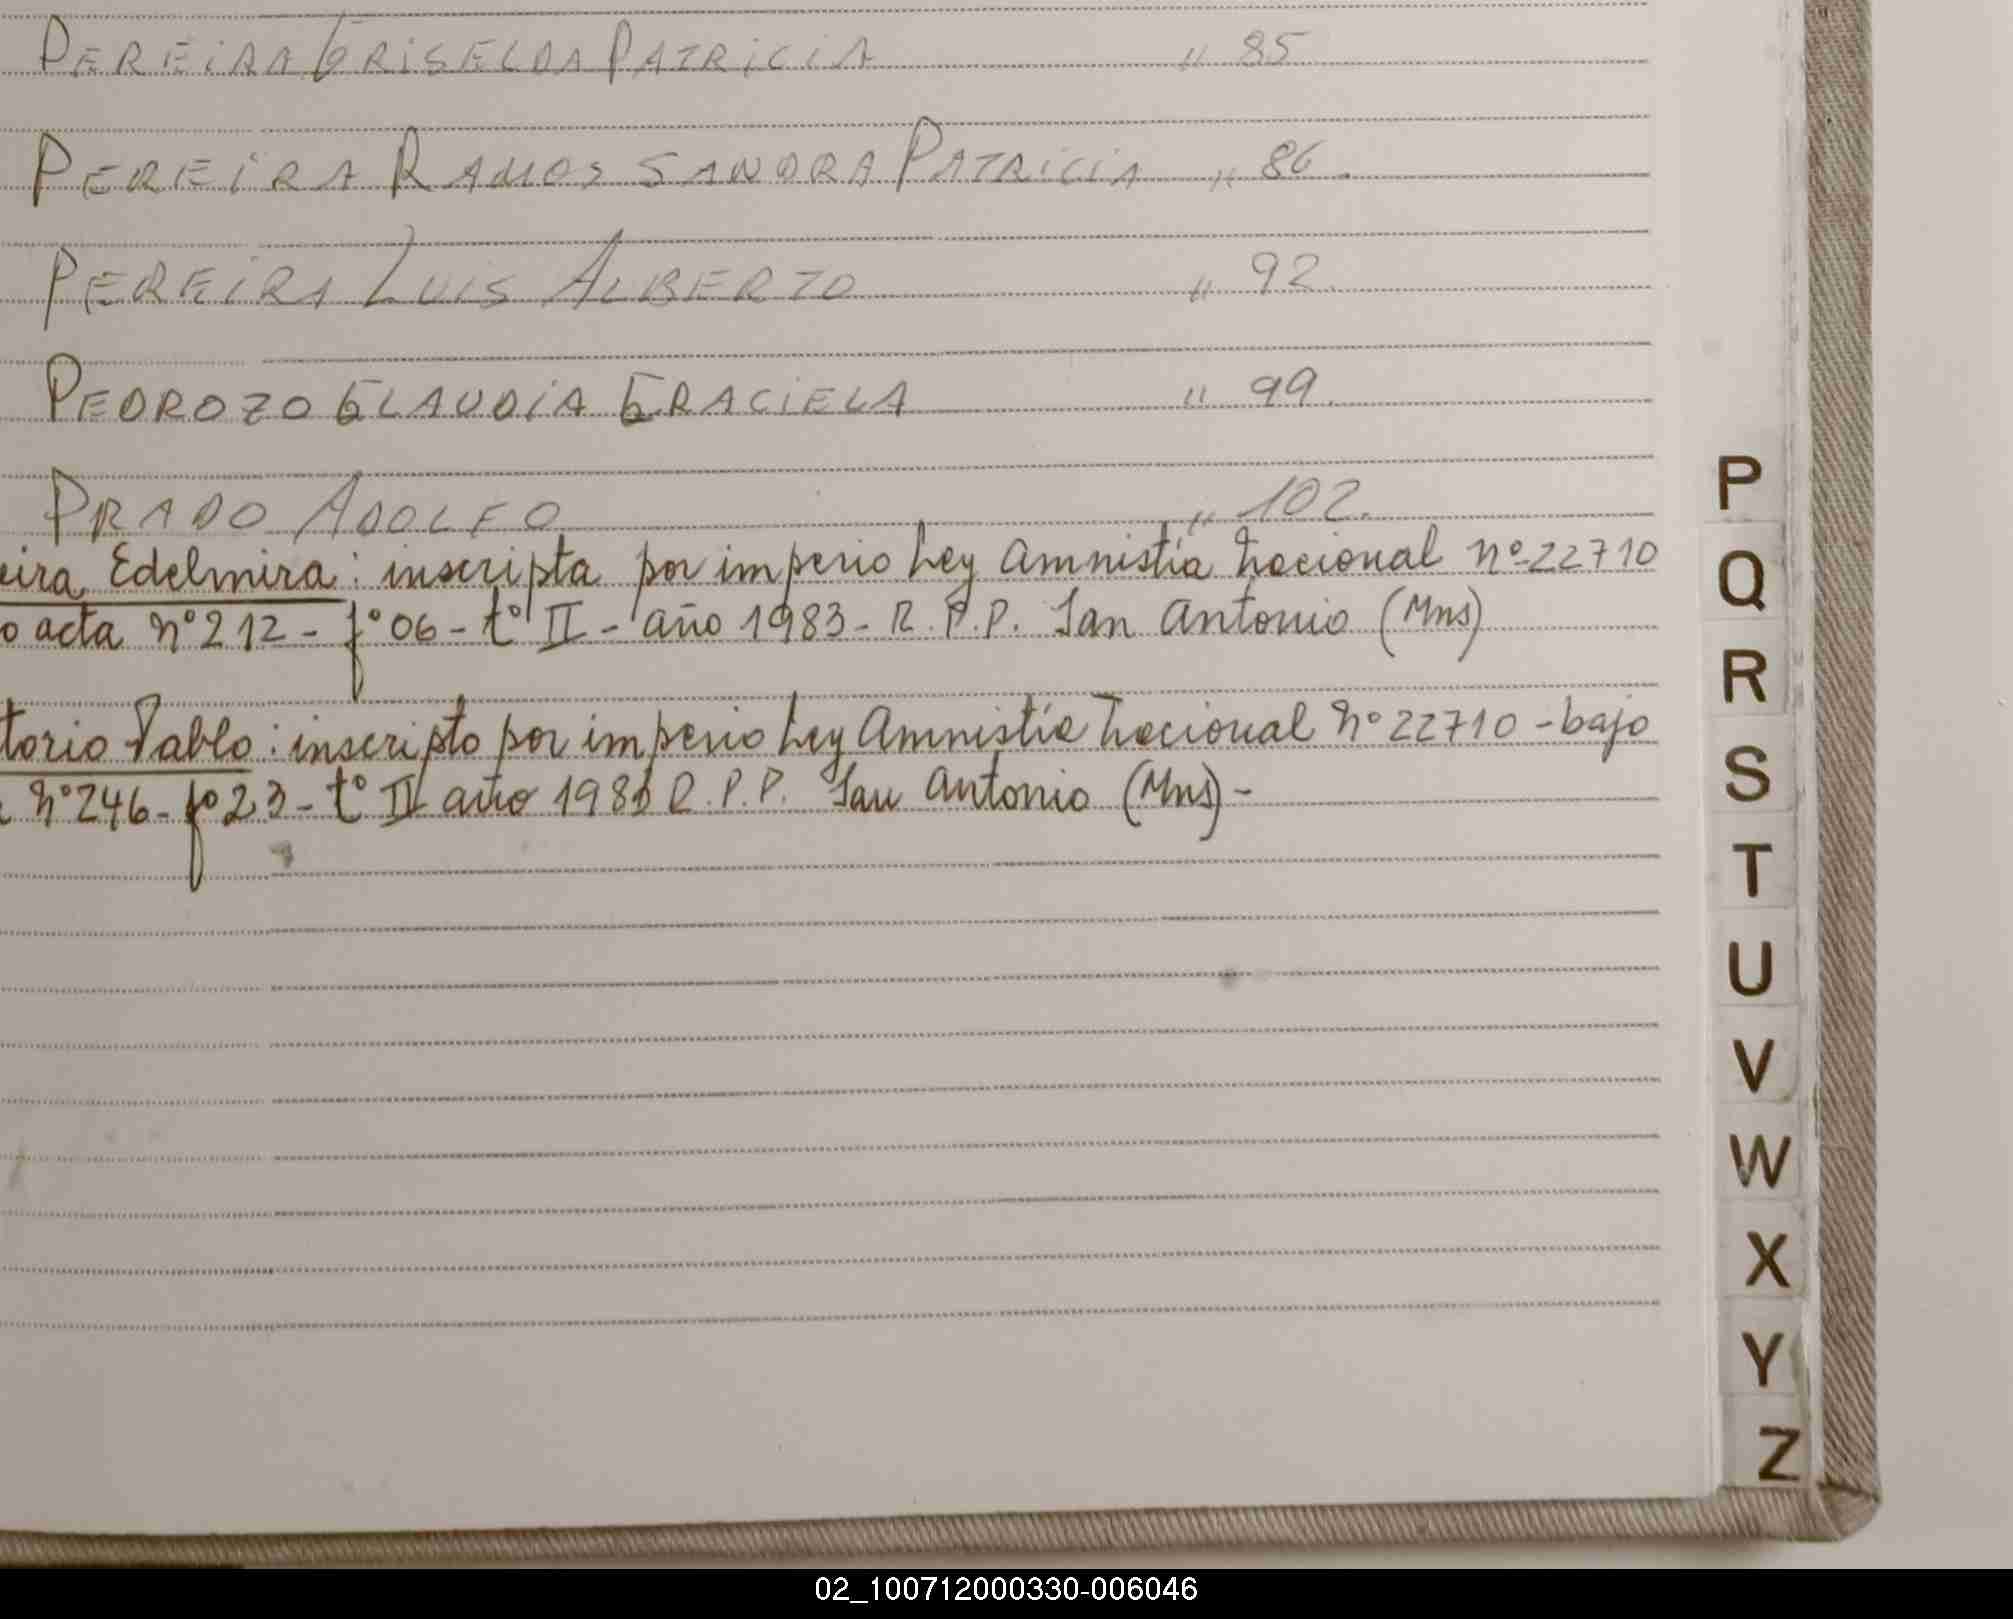 PEREIRA GRISELDA PATRICIA " 85
PEREIRA RAMOS SANDRA PATRICIA " 86.
PEREIRA LUIS ALBERTO " 92.
PEDROZO CLAUDIA GRACIELA " 99.
PRADO ADOLFO " 102.
eira Edelmira: inscripta por imperio Ley Amnistía Nacional nº 22710
o acta nº 212 - fº 06 - tº II - año 1983 - R.P.P. San Antonio (Mns)
torio Pablo: inscripto por imperio Ley Amnistía Nacional Nº 22710 - bajo
nº 246 - fº 23 - tº II año R.P.P. San Antonio (Mns) -
P
Q
R
S
T
U
V
W
X
Y
Z
02_100712000330-006046